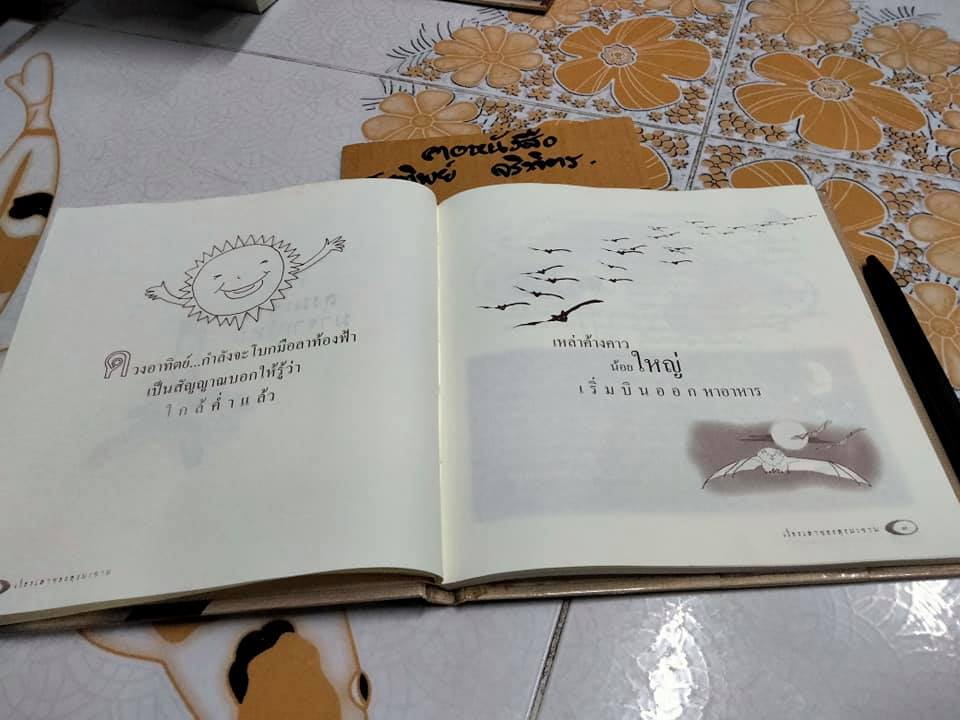 ฅอหนังสือ
ดวงอาทิตย์...กำลังจะโบกมือลาท้องฟ้า
เป็นสัญญาณบอกให้รู้ว่า
ใกล้ค่ำแล้ว
เหล่าค้างคาว
น้อยใหญ่
เริ่มบินออกหาอาหาร